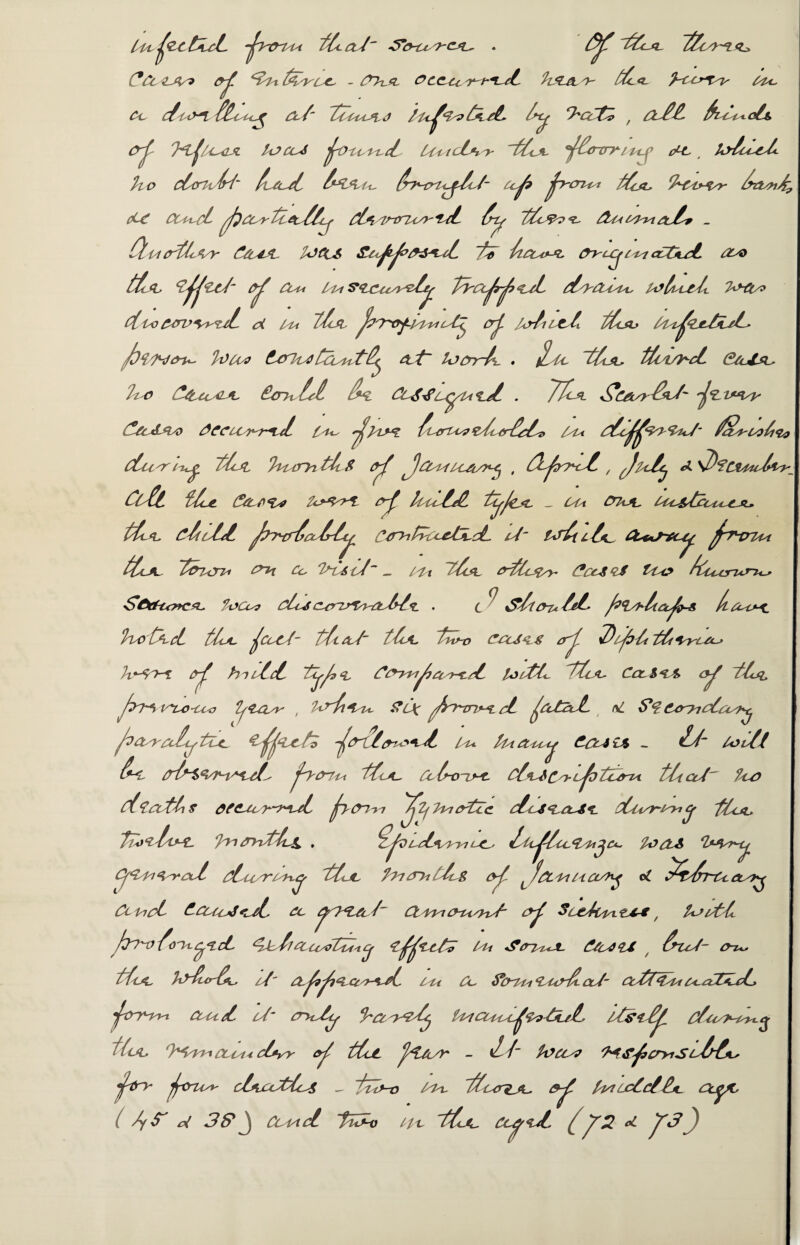 infected from that source. Of the three
cases of Enteric - one occurred near the river in
a dwelling at times infested by rats, all kinds
of refuse was found under the flooring &c, which
no doubt had been brought up from the river bank,
&c and partially devoured by these animals -
Another case was supposed to have originated as
the effect of an insecurely trapped drain which was
discovered in the property of which the infected
person was constantly at work. In the third case
no cause could be assigned. The Scarlet fever
cases occurred in five households in different Parishes
during the months of January, April, July & December.
All the cases were of mild type - in one instance
the child probably contracted it while away from
the town on a visit - in the other cases no known
source was discoverable. I should perhaps have
noted the fact that the two cases of Diphtheria
were of mild type compared with the cases of the
previous year, when six proved fatal, & secondary
paralytic effects followed in many cases - It will
be observed from the above description that no
deaths occurred from Zymotic disease during the
twelve months. Epidemic Influenza was very
general during the months of January & February
and caused a great amount of sickness, with
prolonged exhausting effects in some cases, but on
the whole it appeared in a somewhat attenuated
form and it only rarely manifested itself during
the remainder of the year - It was responsible
for four deaths - two in those of middle age
(45 & 38) and two in the aged (72 & 73)